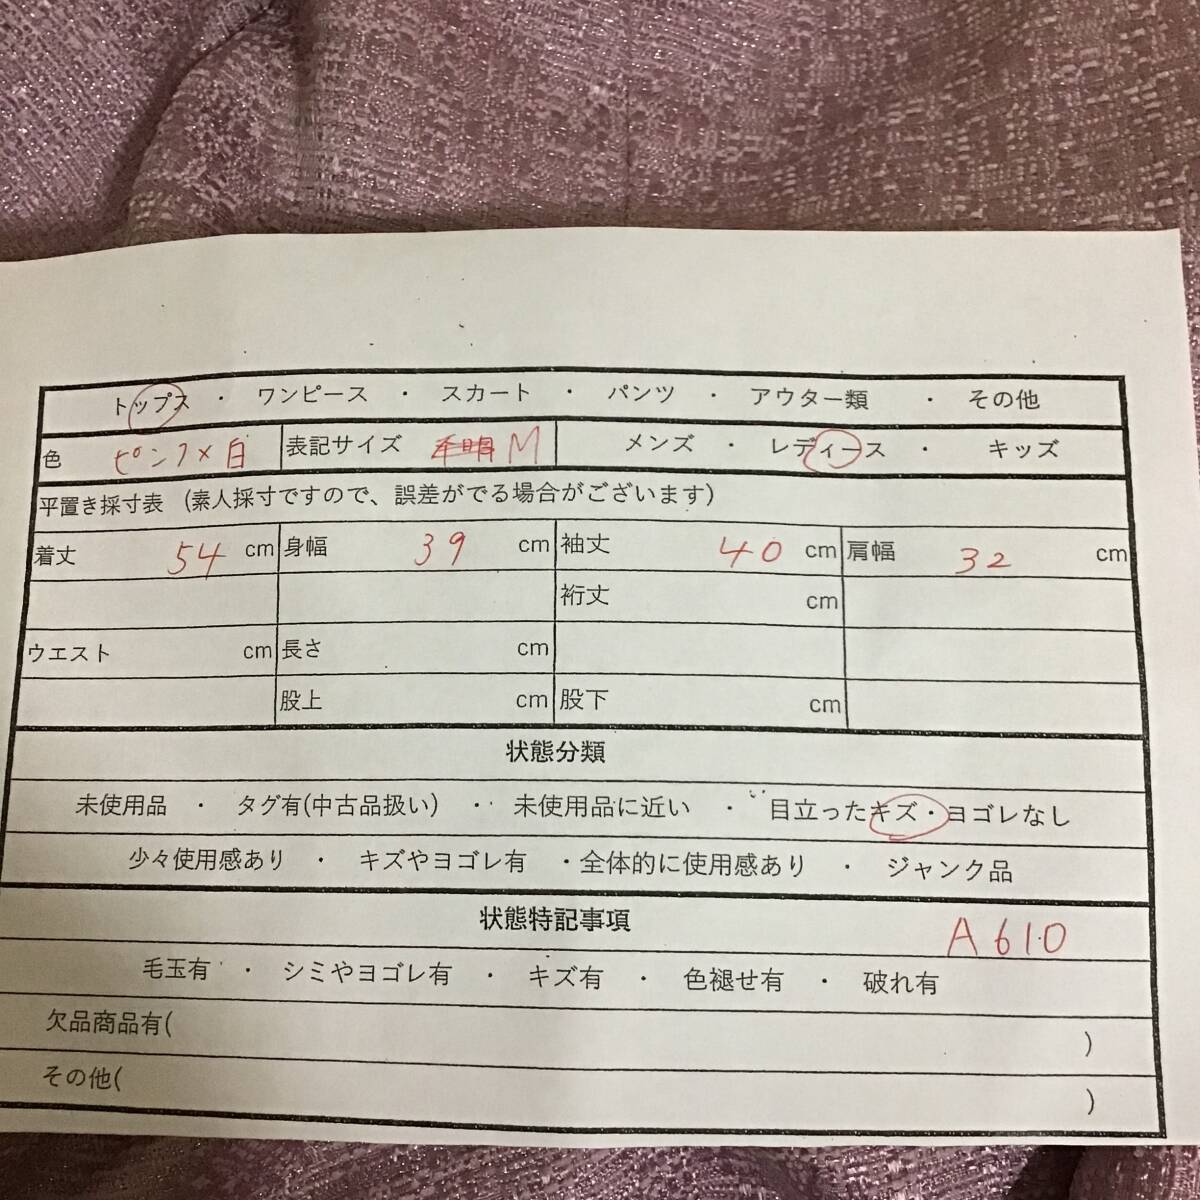 トップス ・ ワンピース ・ スカート ・ パンツ ・ アウター類 ・ その他
色 ピンク×白 表記サイズ 不明 M メンズ ・ レディース ・ キッズ
平置き採寸表 (素人採寸ですので、誤差がでる場合がございます)
着丈 54 cm 身幅 39 cm 袖丈 40 cm 肩幅 32 cm
裄丈 cm
ウエスト cm 長さ cm
股上 cm 股下 cm
状態分類
未使用品 ・ タグ有(中古品扱い) ・ 未使用品に近い ・ 目立ったキズ・ヨゴレなし
少々使用感あり ・ キズやヨゴレ有 ・全体的に使用感あり ・ ジャンク品
状態特記事項 A610
毛玉有 ・ シミやヨゴレ有 ・ キズ有 ・ 色褪せ有 ・ 破れ有
欠品商品有( )
その他( )